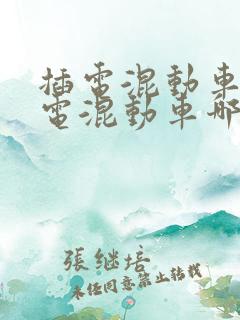 插電混動車
電混動車哪
張继培
未经同意禁止转载